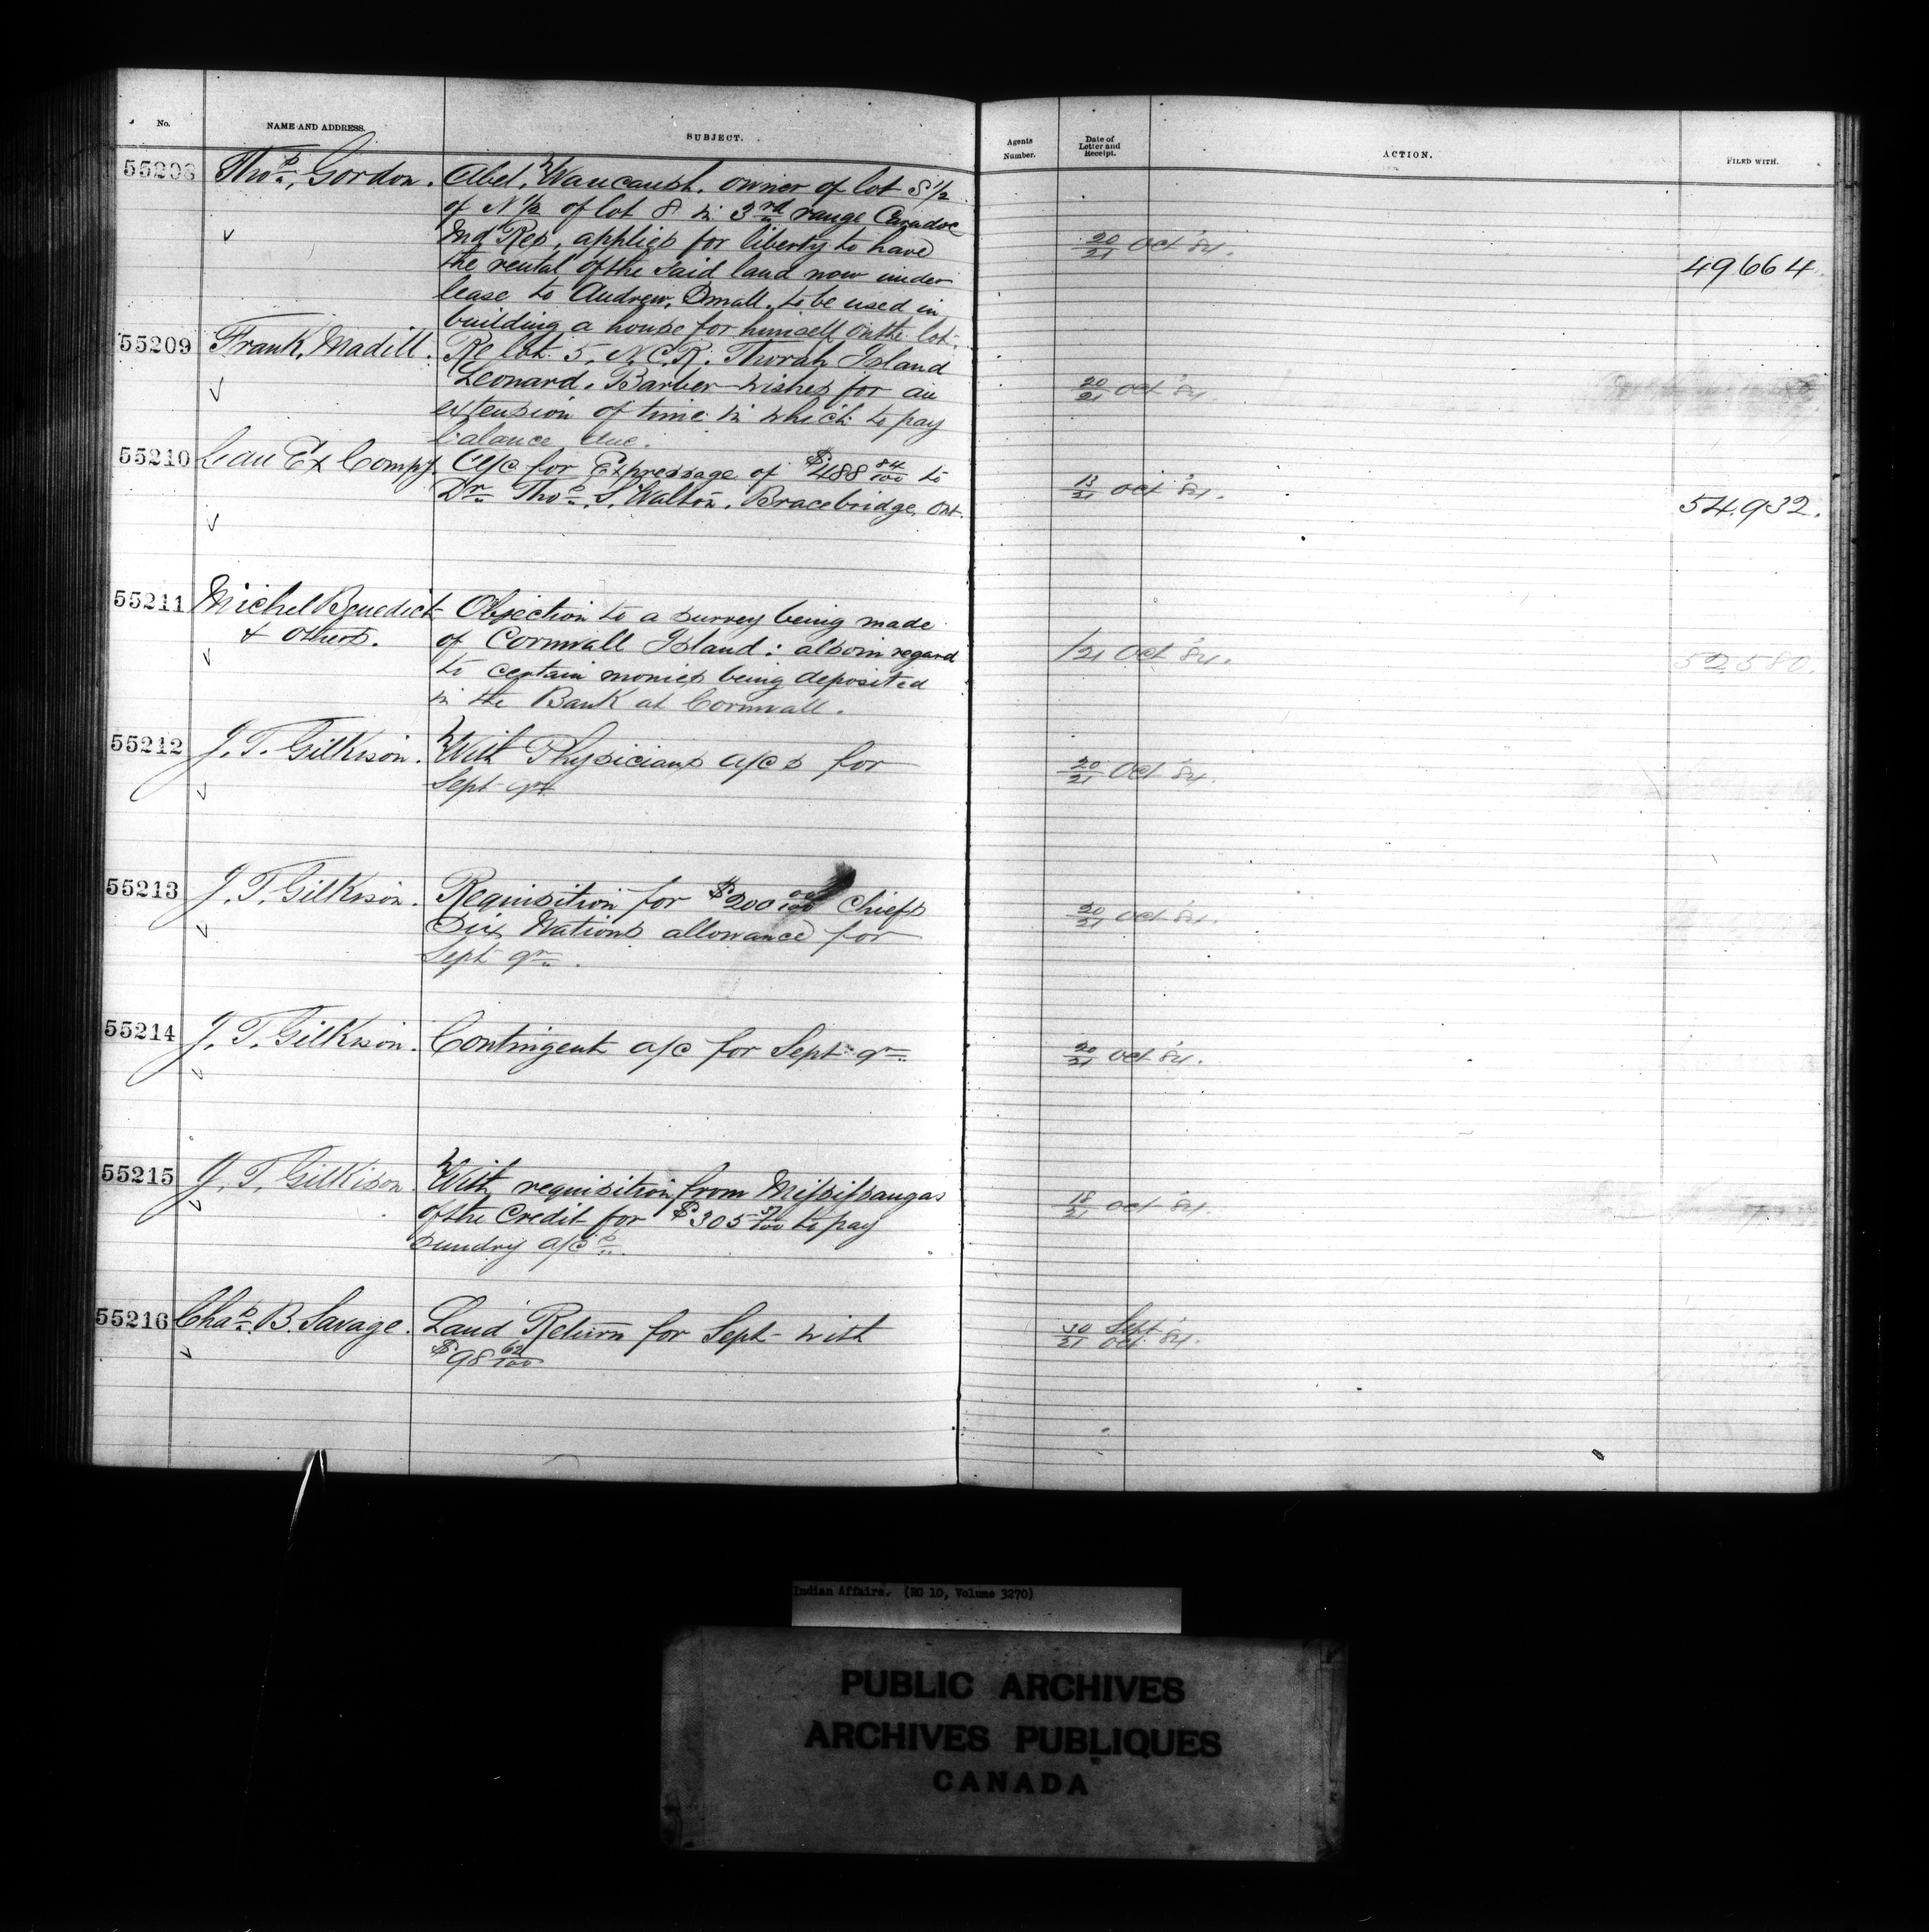 No. NAME AND ADDRESS. SUBJECT. Agents Number. Date of Letter and Receipt. ACTION. FILED WITH.
55208 Thos. Gordon. Abel. Waucaush. owner of lot S 1/2
of N 1/2 of lot 8 in 3rd range Caradoc
Ind Res, applies for liberty to have 20/21 Oct '84.
the rental of the said land now under 49664.
lease to Andrew. Small. to be used in
building a house for himself on the lot.
55209 Frank. Madill. Re lot 5, N.C.R. Thorah Island
Leonard. Barber wishes for an 20/21 Oct '84.
extension of time in which to pay
balance due.
55210 Can Ex Compy A/c for Expressage of $488 84/100 to
Dr. Thos. S. Walton. Bracebridge. Ont. 13/21 Oct '84. 54,932.
55211 Michel Benedict Objection to a survey being made
& others. of Cornwall Island: also in regard /21 Oct '84. 52580.
to certain monies being deposited
in the Bank at Cornwall.
55212 J. T. Gilkison. With Physicians a/cs for 20/21 Oct '84.
Sept qr.
55213 J. T. Gilkison. Requisition for $200 00/100 Chiefs
Six Nations allowance for 20/21 Oct '84.
Sept qr.
55214 J. T. Gilkison. Contingent a/c for Sept qr. 20/21 Oct '84.
55215 J. T. Gilkison. With requisition from Missisaugas
of the Credit for $305 /100 to pay 18/21 Oct '84.
sundry a/cs.
55216 Chas. B. Savage. Land Return for Sept- with 30/21 Sept/Oct '84.
$98 62/100
Indian Affairs. (RG 10, Volume 3270)
PUBLIC ARCHIVES
ARCHIVES PUBLIQUES
CANADA